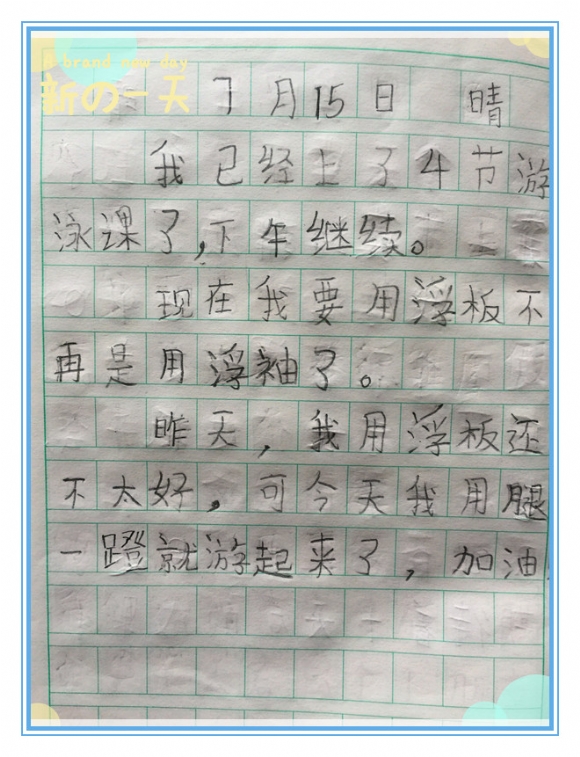 a brand new day
新の一天
7月15日 晴
我已经上了4节游
泳课了,下午继续。
现在我要用浮板不
再是用浮袖了。
昨天,我用浮板还
不太好,可今天我用腿
一蹬就游起来了,加油!